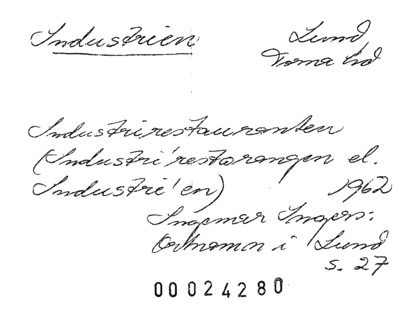 Industrien Lund
Torna hd
Industrirestauranten
(Industri'restorangen el.
Industri'en) 1962
Ingemar Ingers:
Ortnamn i Lund
s. 27
00024280